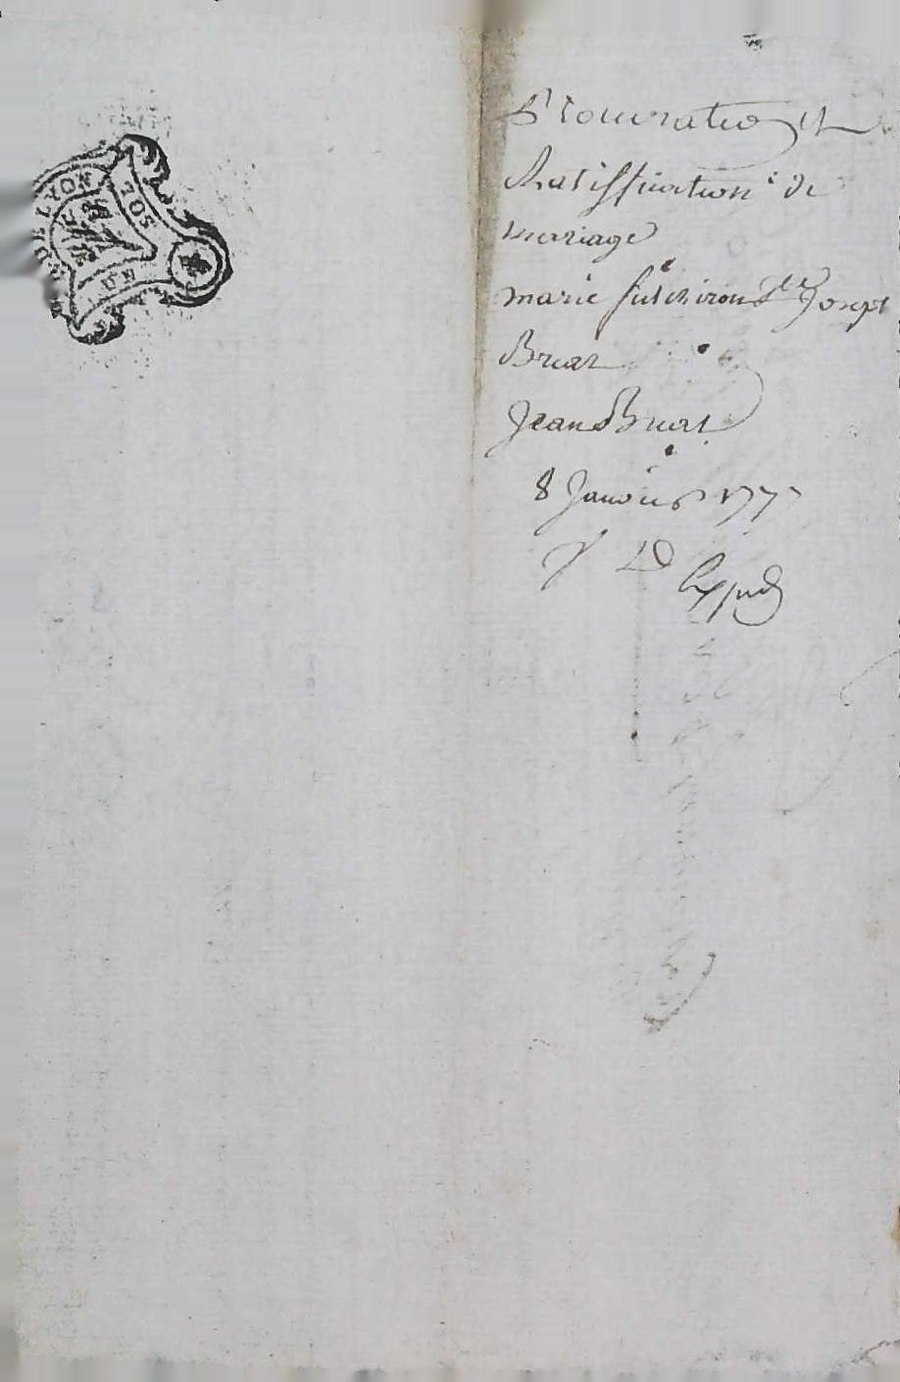 DE LYON
UN SOL
Procuration et
Ratiffication de
mariage
marie futchiron Vve Joseph
Bruat
Jean Bruat
8 Janvier 1777
Expond